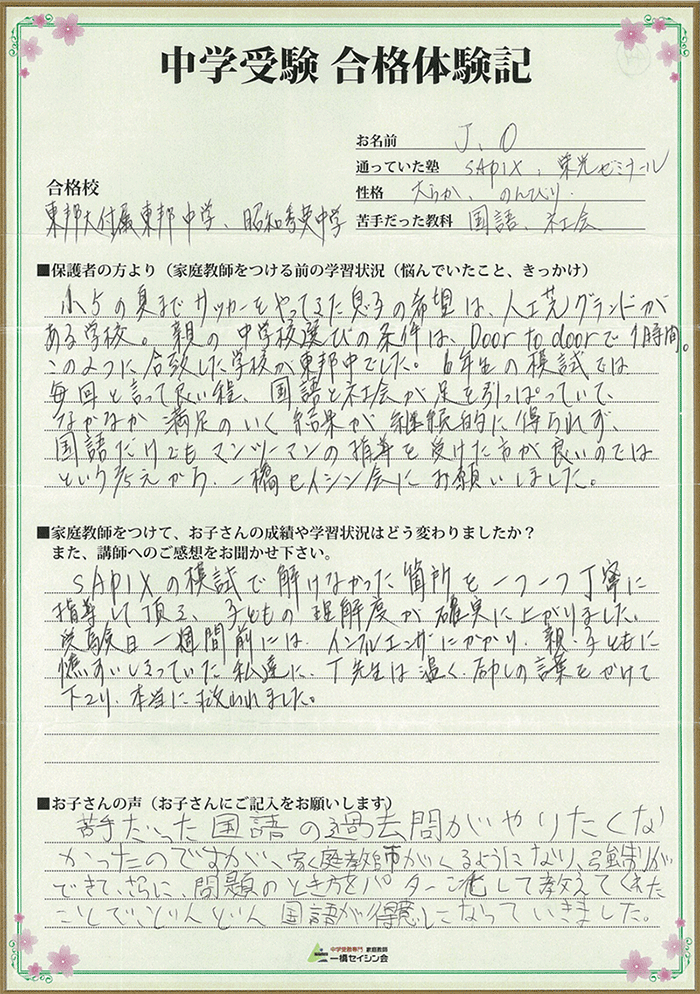 中学受験 合格体験記
お名前 J.O
通っていた塾 SAPIX、栄光ゼミナール
性格 大らか、のんびり.
苦手だった教科 国語、社会
合格校
東邦大付属東邦中学、昭和秀英中学
■保護者の方より（家庭教師をつける前の学習状況（悩んでいたこと、きっかけ）
小5の夏までサッカーをやってきた息子の希望は、人工芝グランドが
ある学校。親の中学校選びの条件は、Door to doorで1時間。
このように合致した学校が東邦中でした。6年生の模試では
毎回と言って良い程、国語と社会が足を引っぱっていて、
なかなか満足のいく結果が継続的に得られず、
国語だけでもマンツーマンの指導を受けた方が良いのでは
という考えから、一橋セイシン会にお願いしました。
■家庭教師をつけて、お子さんの成績や学習状況はどう変わりましたか？
また、講師へのご感想をお聞かせ下さい。
SAPIXの模試で解けなかった箇所を一つ一つ丁寧に
指導して頂き、子どもの理解度が確実に上がりました。
受験日一週間前には、インフルエンザにかかり、親・子ともに
憔すいしきっていた私達に、T先生は温く、励しの言葉をかけて
下さり、本当に救われました。
■お子さんの声（お子さんにご記入をお願いします）
苦手だった国語の過去問がやりたくな
かったのですが、家庭教師がくるようになり、強制が
できて、さらに、問題のとき方をパターン化して教えてくれた
ことでどんどん国語が得意になっていきました。
中学受験専門 家庭教師
一橋セイシン会